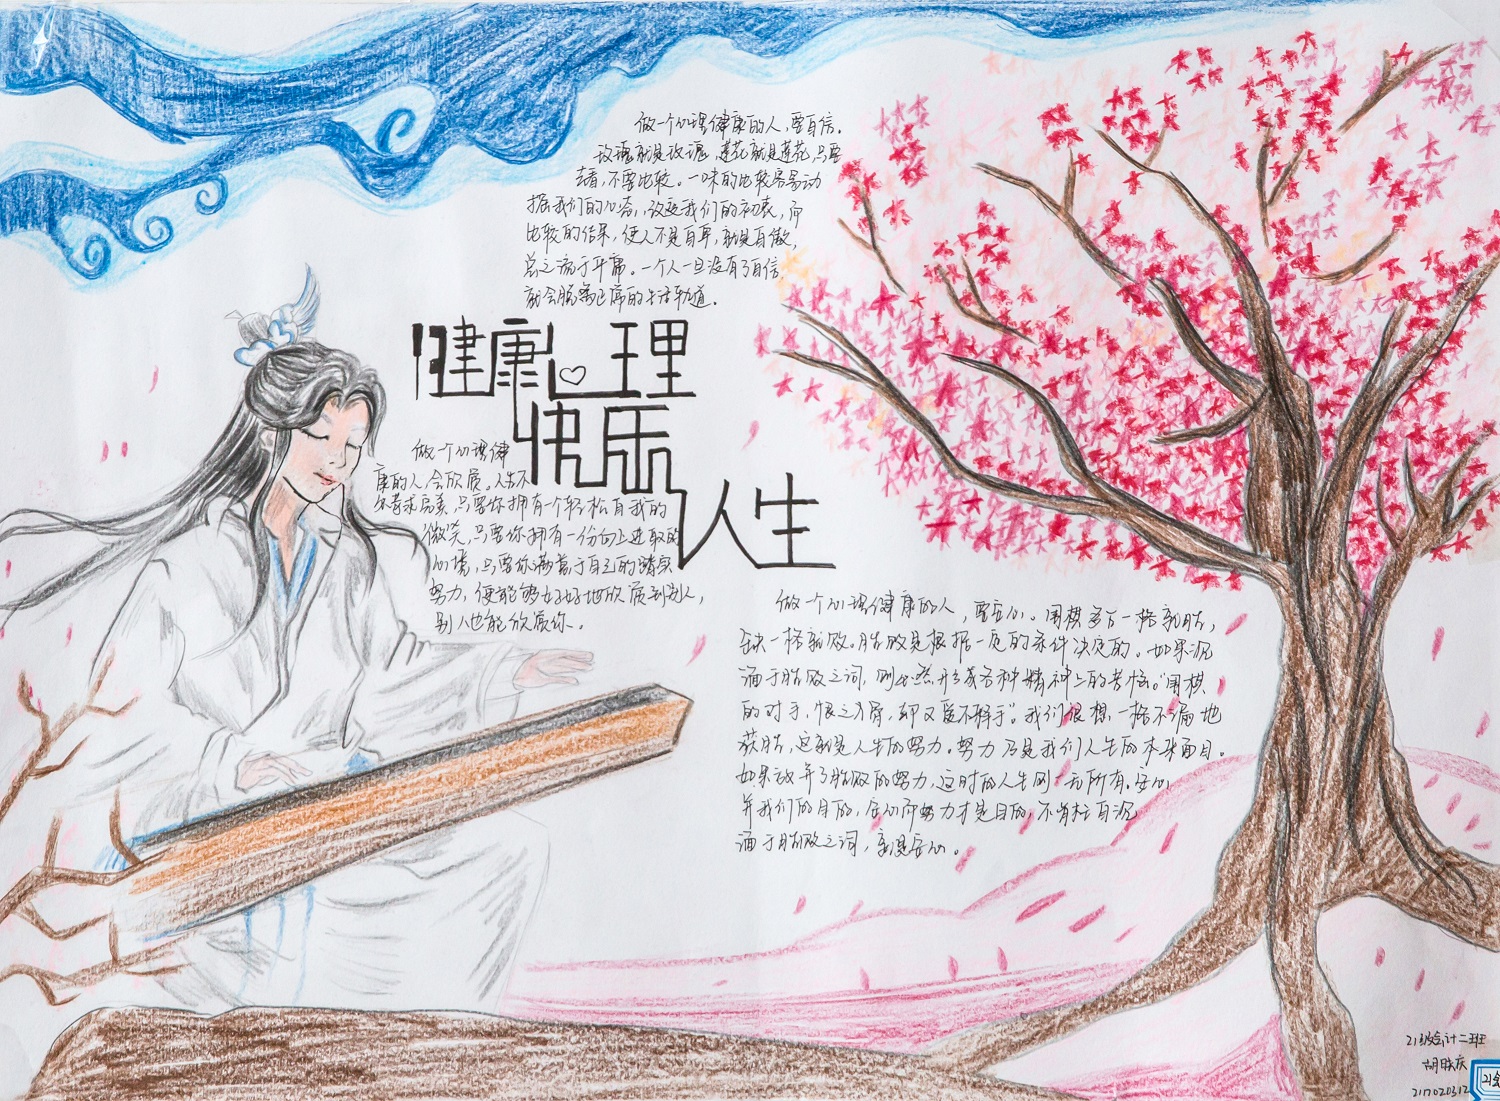 做一个心理健康的人，要自信。
玫瑰就是玫瑰，莲花就是莲花，只要
去看，不要比较。一味的比较容易动
摇我们的心态，改变我们的初衷，而
比较的结果，使人不是自卑，就是自傲，
总之流于平庸。一个人一旦没有了自信，
就会脱离正常的生活轨道。
健康心理
快乐
人生
做一个心理健
康的人，会欣赏。人生不
必苛求完美，只要你拥有一个轻松自我的
微笑，只要你拥有一份向上进取的
心情，只要你满意于自己的踏实
努力，便能够好好地欣赏到别人，
别人也能欣赏你。
做一个心理健康的人，要安心。围棋多下一格就胜，
缺一格就败。胜败是根据一定的条件决定的。如果沉
涌于胜败之词，则必然形成各种精神上的苦恼。“围棋
的对手，恨之入骨，却又爱不释手”。我们很想一格不漏地
获胜，这就是人生的努力。努力乃是我们人生的本来面目。
如果放弃了胜败的努力，这时的人生则一无所有。安心
并我们的目的，安心而努力才是目的，不肯枉自沉
涌于胜败之词，就是安心。
21级会计二班
217020312